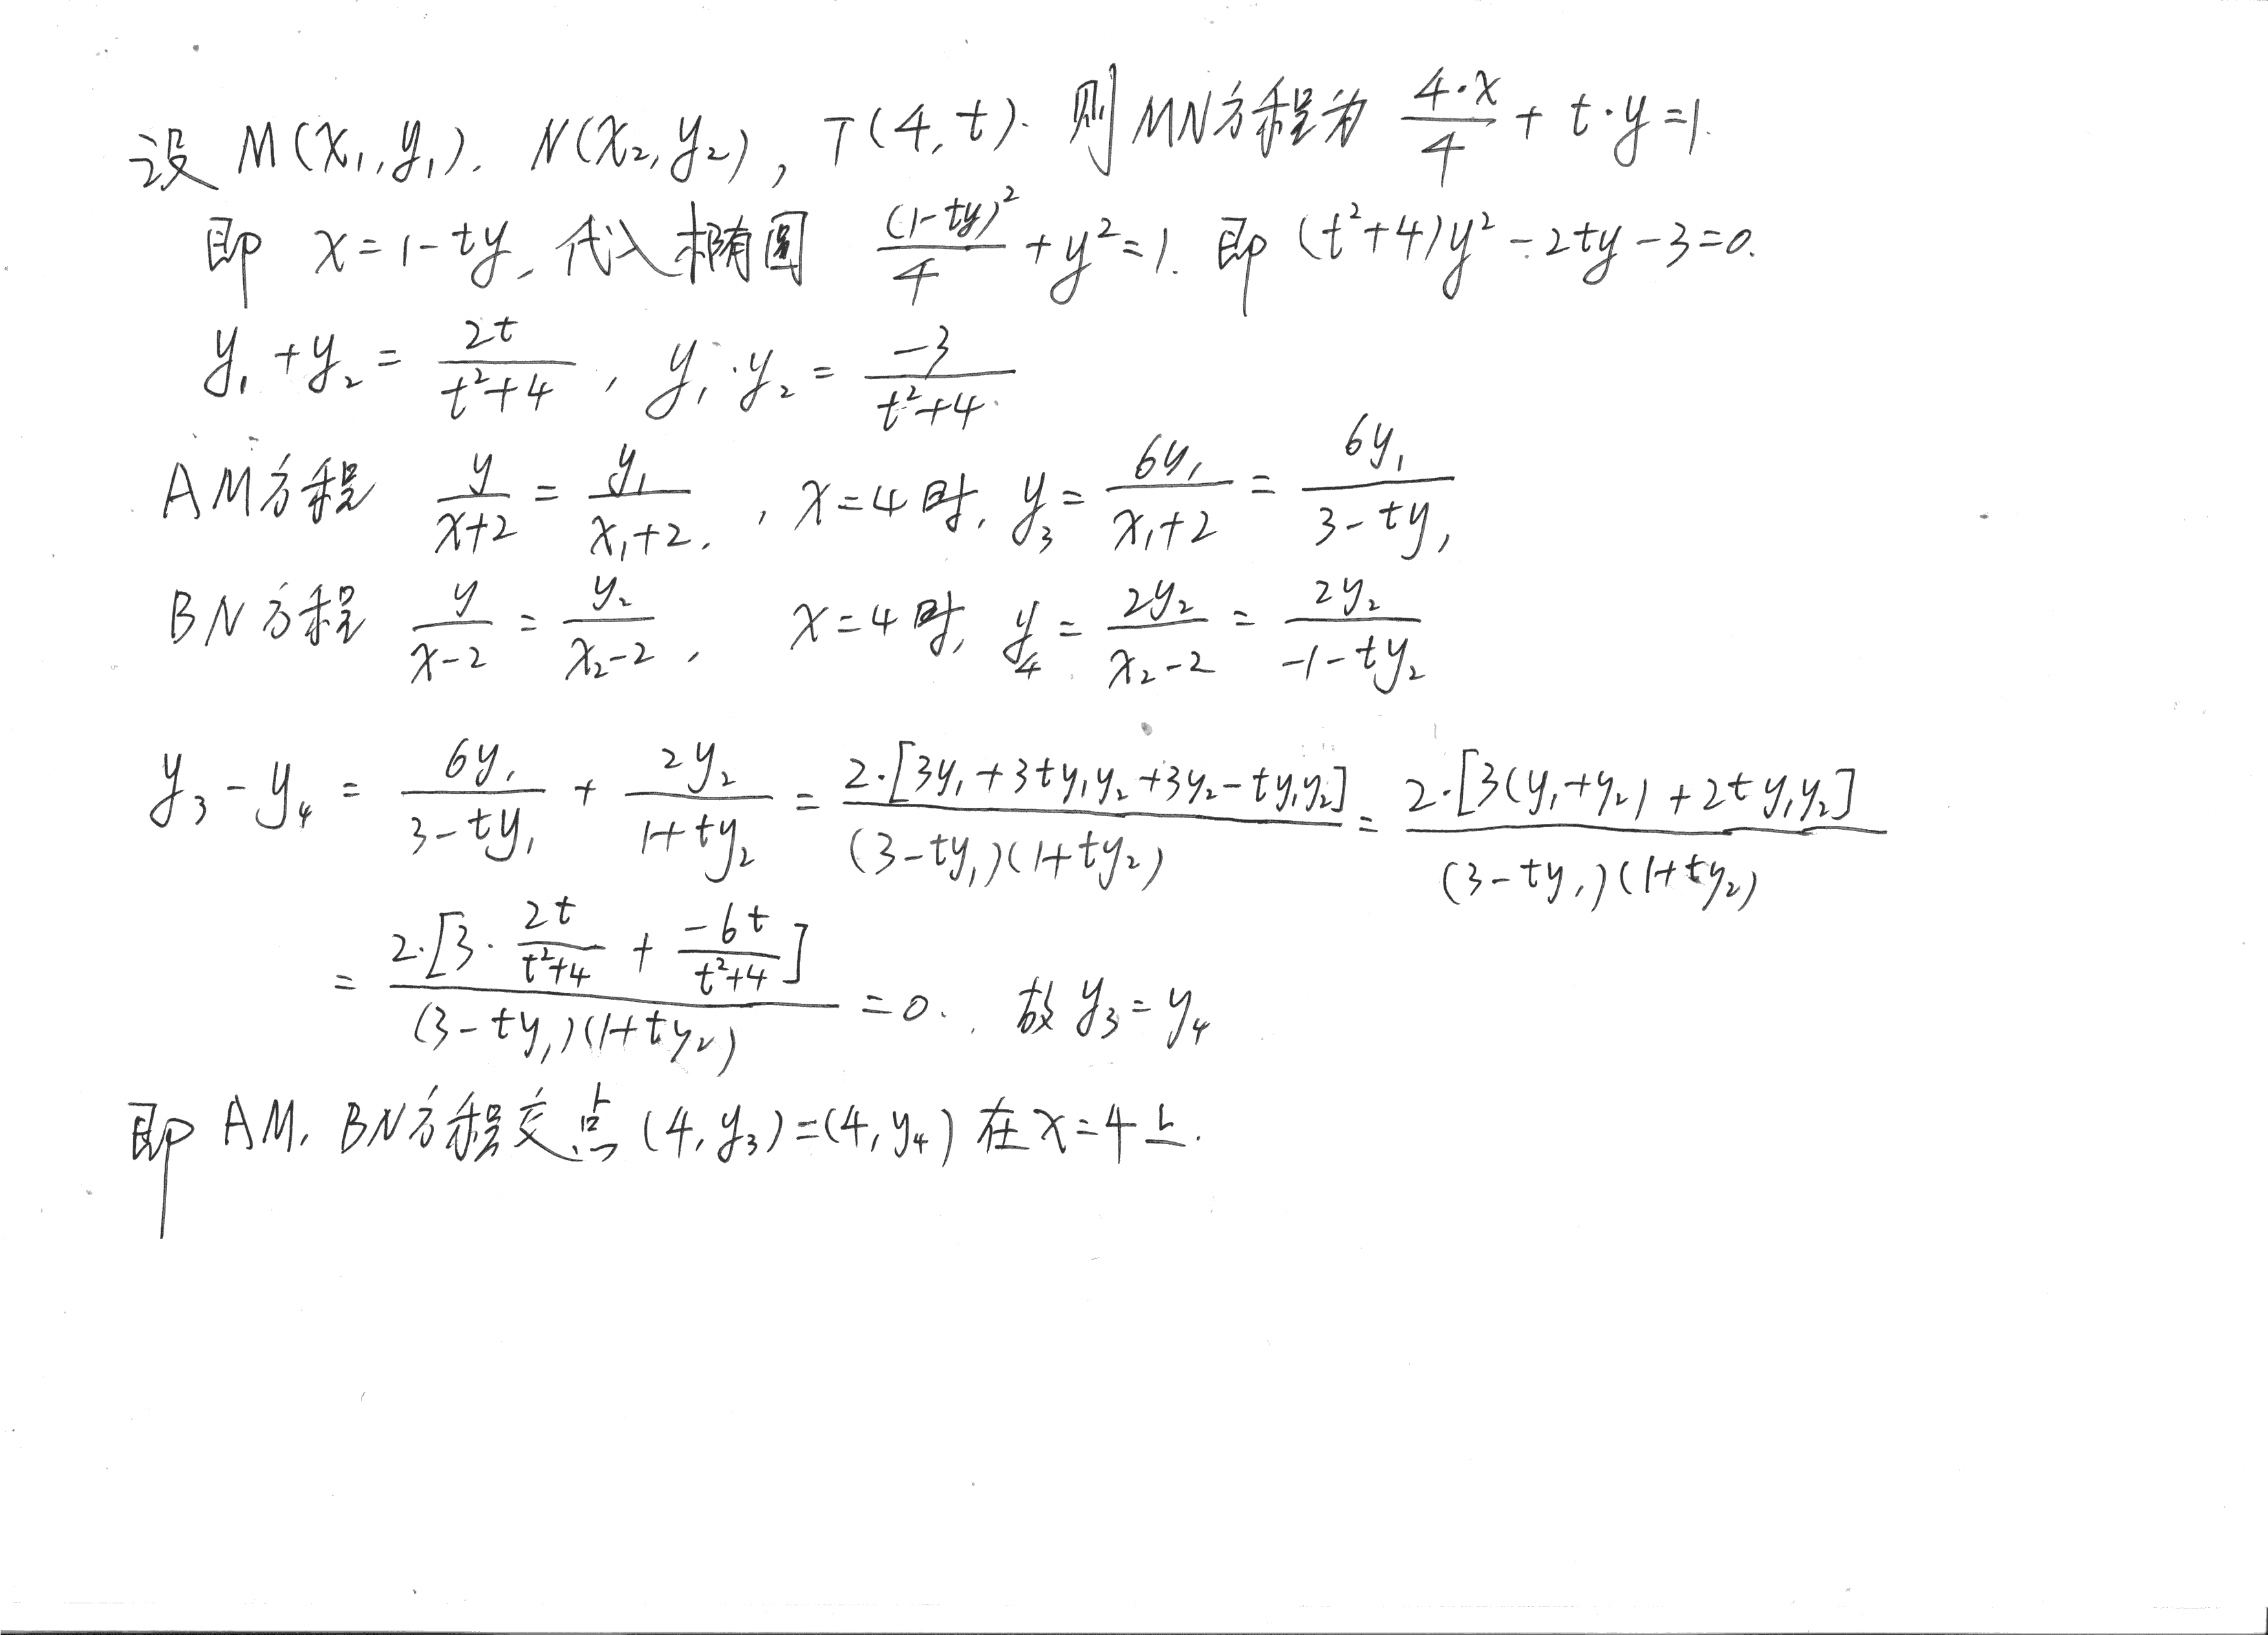 设 M(x₁,y₁). N(x₂,y₂), T(4,t). 则MN方程为 4·x/4 + t·y=1.
即 x=1-ty, 代入椭圆 (1-ty)²/4 + y²=1. 即 (t²+4)y²-2ty-3=0.
y₁+y₂ = 2t/(t²+4), y₁·y₂ = -3/(t²+4).
AM方程 y/(x+2) = y₁/(x₁+2), x=4时, y₃ = 6y₁/(x₁+2) = 6y₁/(3-ty₁)
BN方程 y/(x-2) = y₂/(x₂-2), x=4时, y₄ = 2y₂/(x₂-2) = 2y₂/(-1-ty₂)
y₃-y₄ = 6y₁/(3-ty₁) + 2y₂/(1+ty₂) = 2·[3y₁+3ty₁y₂+3y₂-ty₁y₂]/(3-ty₁)(1+ty₂) = 2·[3(y₁+y₂)+2ty₁y₂]/(3-ty₁)(1+ty₂)
= 2·[3·2t/(t²+4) + -6t/(t²+4)]/(3-ty₁)(1+ty₂) =0. 故 y₃=y₄
即 AM, BN方程交点 (4,y₃)=(4,y₄) 在 x=4上.